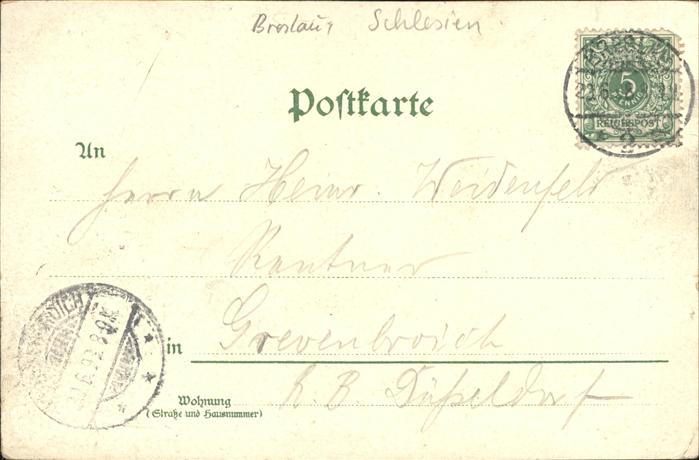 Breslau, Schlesien.
Postkarte
An
Herrn Heinr. Weidenfeld
Rentner
in Grevenbroich
R. B. Düßeldorf
Wohnung
(Straße und Hausnummer)
BRESLAU
5
PFENNIG
REICHSPOST
2